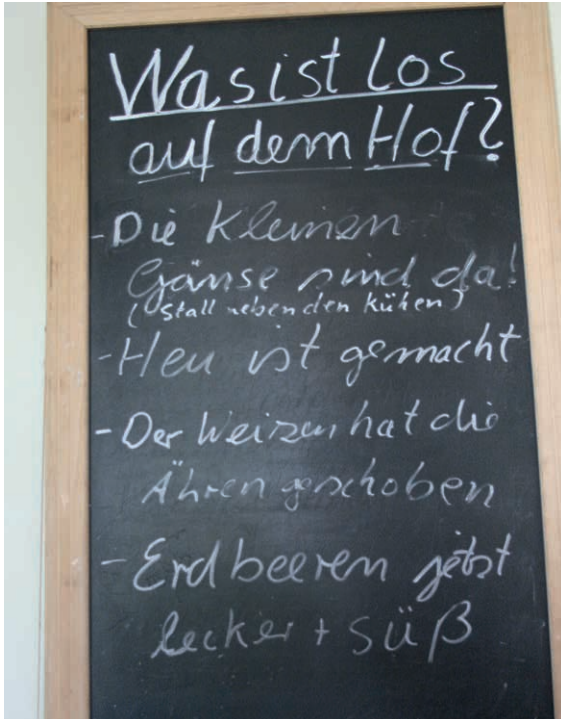 Was ist los
auf dem Hof?
- Die kleinen
Gänse sind da!
(Stall neben den Kühen)
- Heu ist gemacht
- Der Weizen hat die
Ähren geschoben
- Erdbeeren jetzt
lecker + süß